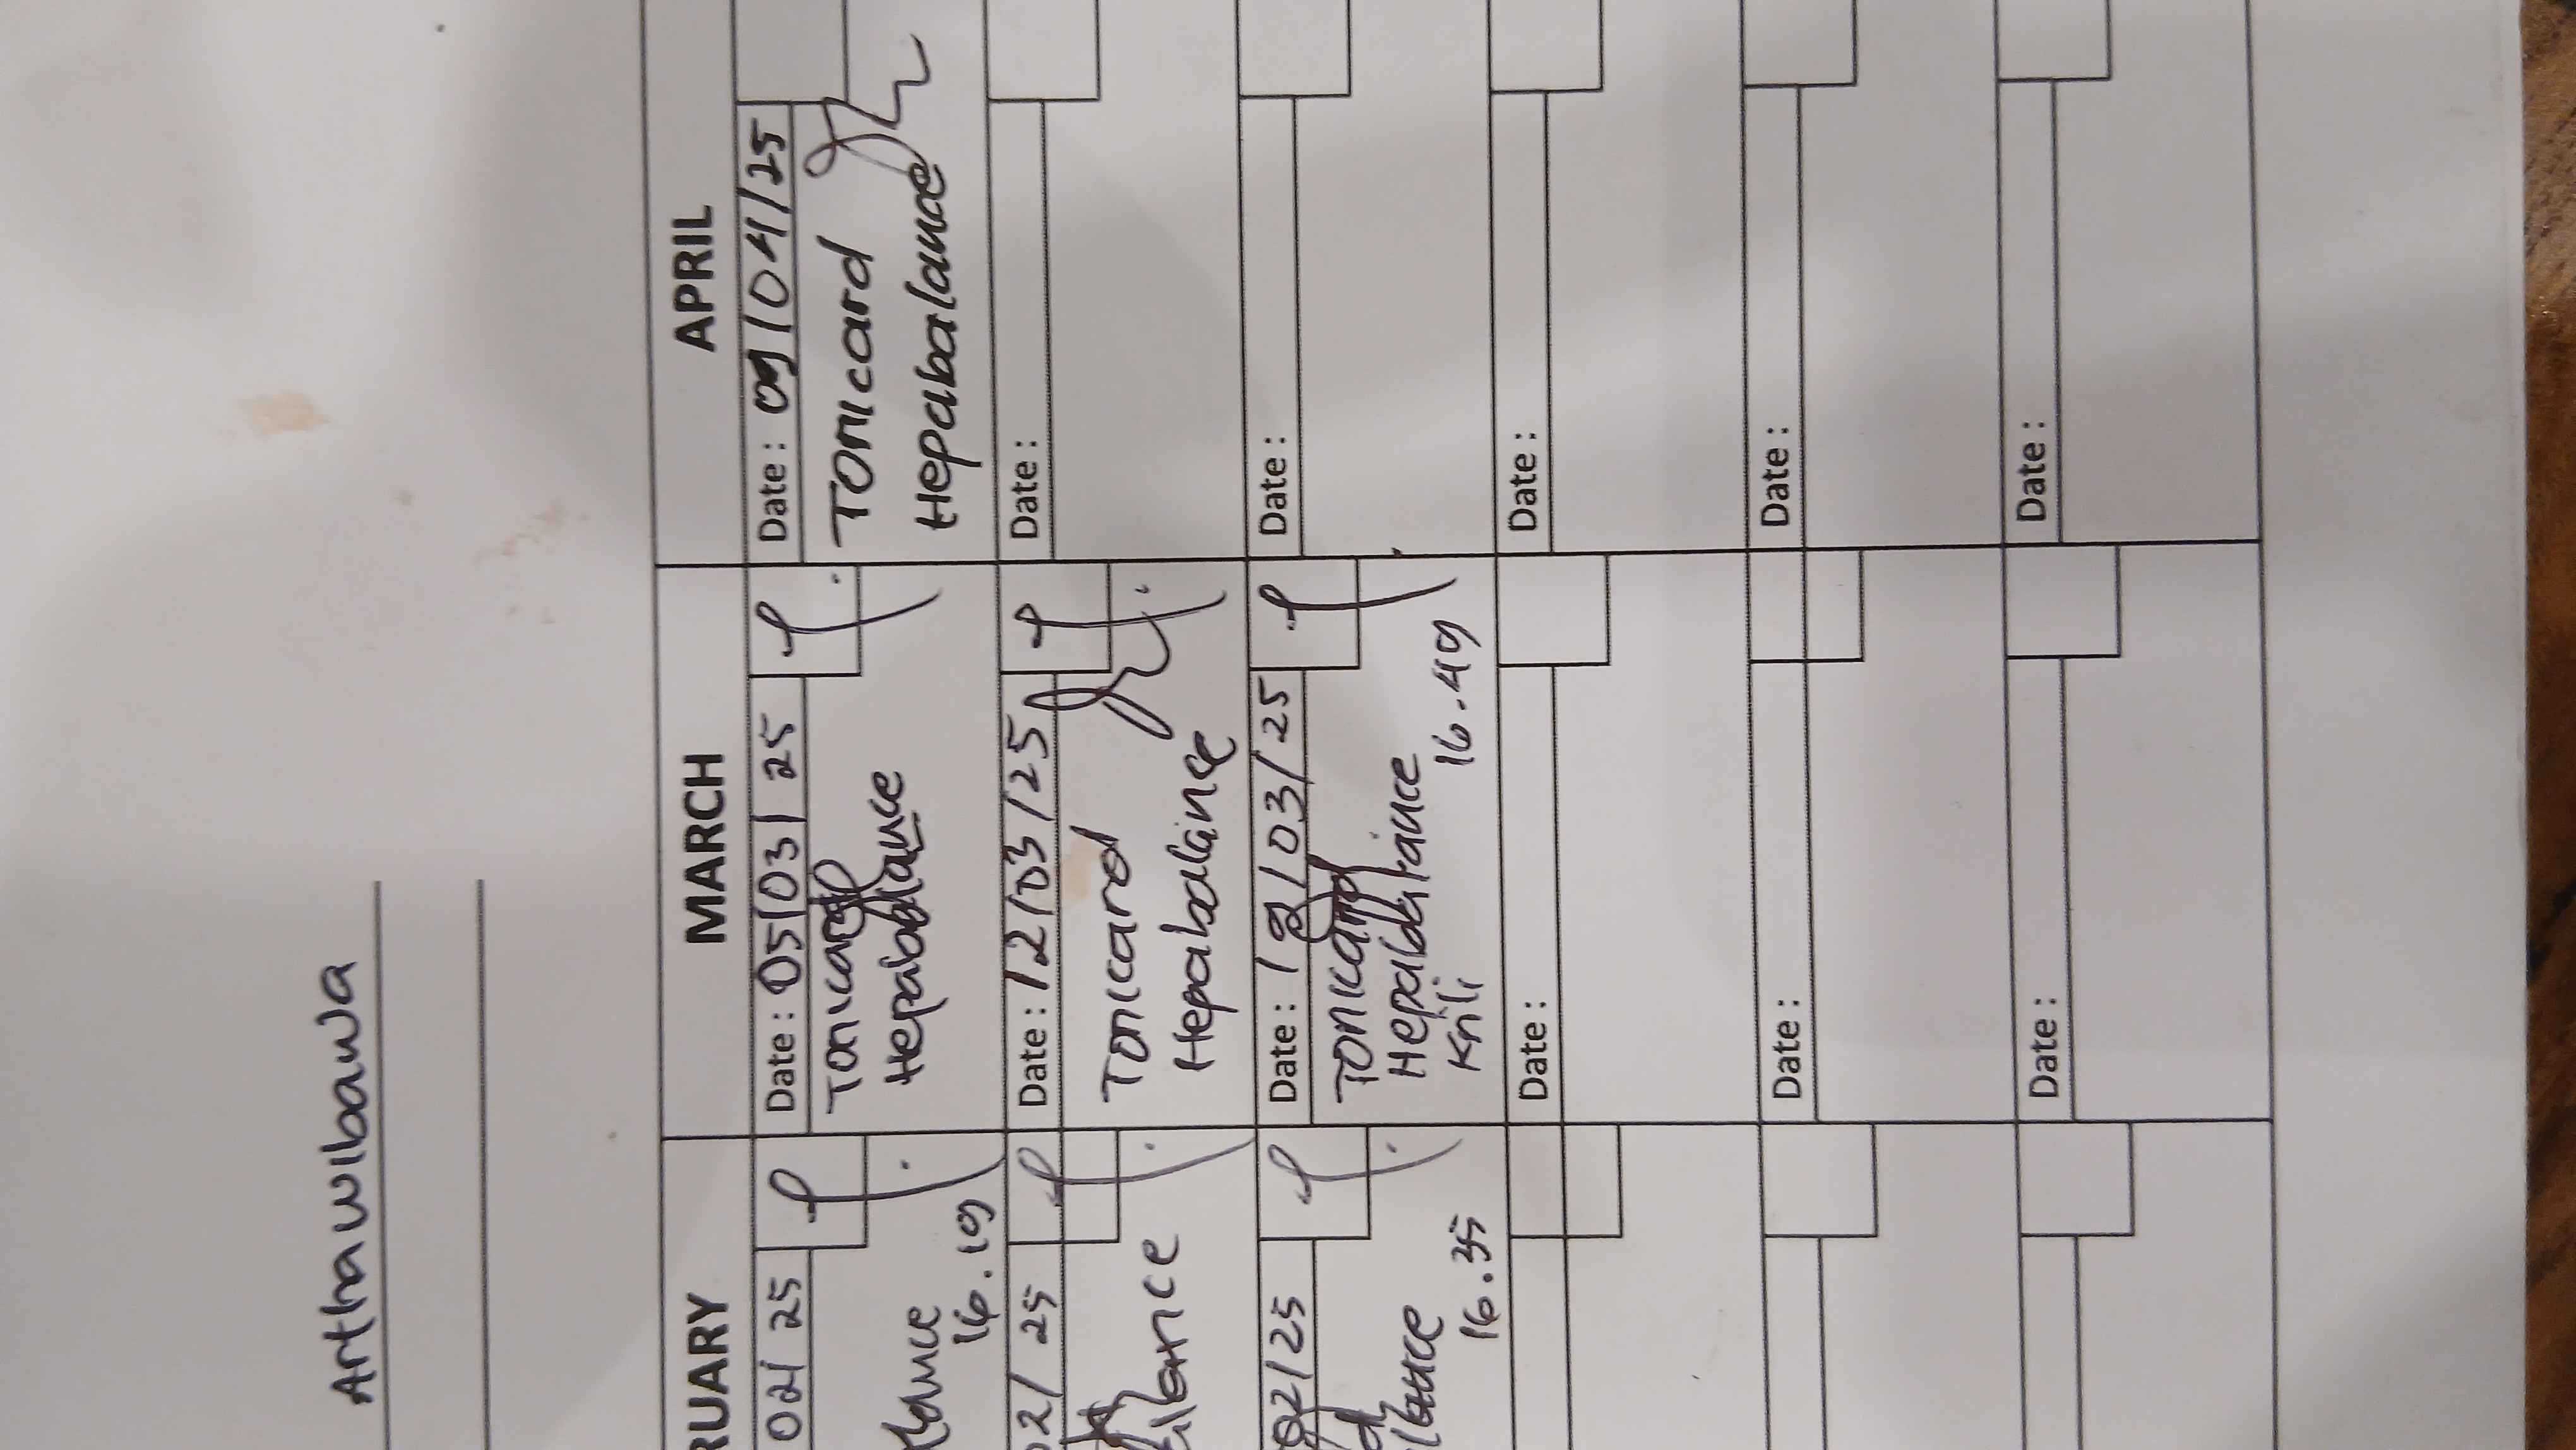 Arthawibawa
RUARY MARCH APRIL
02/ 25
lance
16.19
02/ 25
lance
02/25
lance
16.35
Date : 05/03/ 25
Tonicard
Hepabalance
Date : 12/03/25
Toniccard
Hepabalance
Date : 19/03/25
Tonicard
Hepabalance
Krili
16.49
Date :
Date :
Date :
Date : 09/04/25
Toniccard
Hepabalance
Date :
Date :
Date :
Date :
Date :